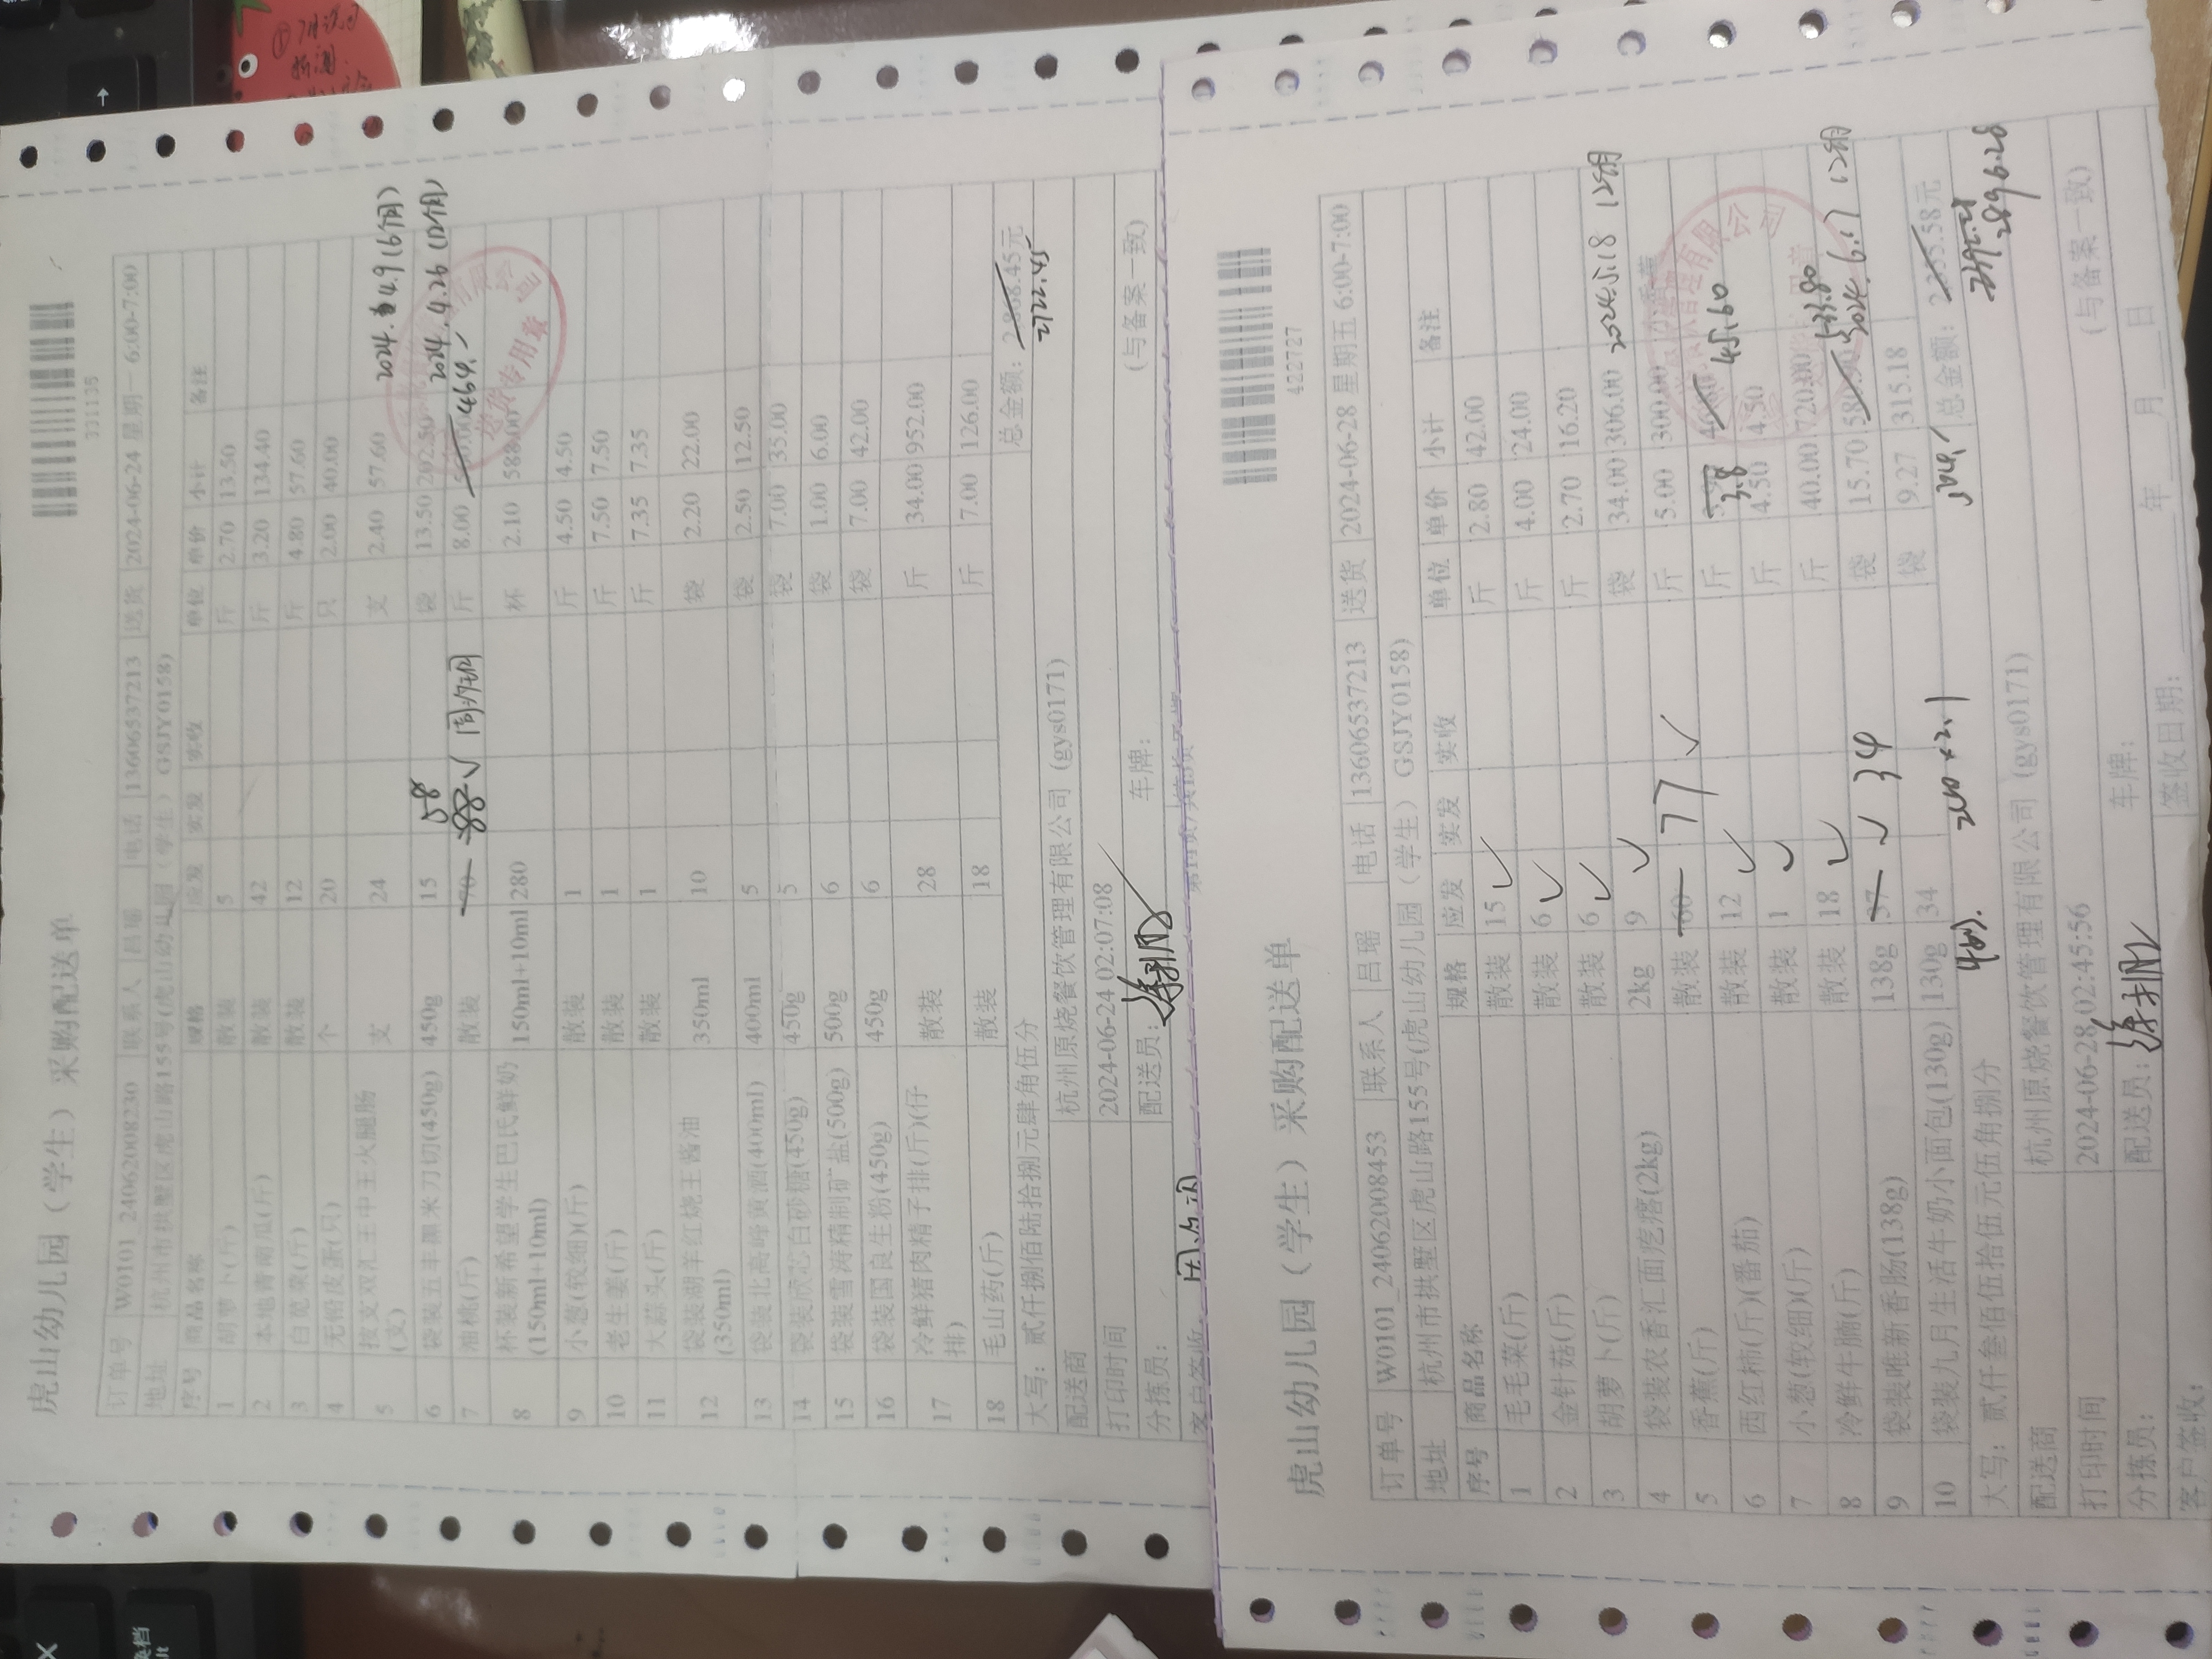 虎山幼儿园（学生）采购配送单
331135
订单号 W0101_240620008230 联系人 吕瑶 电话 13606537213 送货 2024-06-24 星期一 6:00-7:00
地址 杭州市拱墅区虎山路155号(虎山幼儿园（学生）GSJY0158)
序号 商品名称 规格 应发 实发 实收 单位 单价 小计 备注
1 胡萝卜(斤) 散装 5 斤 2.70 13.50
2 本地青南瓜(斤) 散装 42 斤 3.20 134.40
3 白苋菜(斤) 散装 12 斤 4.80 57.60
4 无铅皮蛋(只) 个 20 只 2.00 40.00
5 按支双汇王中王火腿肠(支) 支 24 支 2.40 57.60 2024.4.9(6个月)
6 袋装五丰黑米刀切(450g) 450g 15 袋 13.50 202.50 2024.4.26(12个月)
7 油桃(斤) 散装 70 58 斤 8.00 464.
8 杯装新希望学生巴氏鲜奶(150ml+10ml) 150ml+10ml 280 杯 2.10 588.00
9 小葱(软细)(斤) 散装 1 斤 4.50 4.50
10 老生姜(斤) 散装 1 斤 7.50 7.50
11 大蒜头(斤) 散装 1 斤 7.35 7.35
12 袋装湖羊红烧王酱油(350ml) 350ml 10 袋 2.20 22.00
13 袋装北高峰黄酒(400ml) 400ml 5 袋 2.50 12.50
14 袋装欣芯白砂糖(450g) 450g 5 袋 7.00 35.00
15 袋装雪涛精制矿盐(500g) 500g 6 袋 1.00 6.00
16 袋装国良生粉(450g) 450g 6 袋 7.00 42.00
17 冷鲜猪肉精子排(斤)(仔排) 散装 28 斤 34.00 952.00
18 毛山药(斤) 散装 18 斤 7.00 126.00
大写： 贰仟捌佰陆拾捌元肆角伍分 总金额: 2868.45元
2772.45
配送商 杭州原烧餐饮管理有限公司（gys0171） （与备案一致）
打印时间 2024-06-24 02:07:08
分拣员： 配送员： 车牌：
客户签收：
虎山幼儿园（学生）采购配送单
422727
订单号 W0101_240620008453 联系人 吕瑶 电话 13606537213 送货 2024-06-28 星期五 6:00-7:00
地址 杭州市拱墅区虎山路155号(虎山幼儿园（学生）GSJY0158)
序号 商品名称 规格 应发 实发 实收 单位 单价 小计 备注
1 毛毛菜(斤) 散装 15 斤 2.80 42.00
2 金针菇(斤) 散装 6 斤 4.00 24.00
3 胡萝卜(斤) 散装 6 斤 2.70 16.20
4 袋装农香汇面疙瘩(2kg) 2kg 9 袋 34.00 306.00
5 香蕉(斤) 散装 60 77 斤 5.00 300.00
6 西红柿(斤)(番茄) 散装 12 斤 3.8 45.60
7 小葱(软细)(斤) 散装 1 斤 4.50 4.50
8 冷鲜牛腩(斤) 散装 18 斤 40.00 720.00
9 袋装唯新香肠(138g) 138g 37 34 袋 15.70 533.80
10 袋装九月生活牛奶小面包(130g) 130g 34 袋 9.27 315.18
大写： 贰仟叁佰伍拾伍元伍角捌分 总金额: 2355.58元
2896.28
配送商 杭州原烧餐饮管理有限公司（gys0171） （与备案一致）
打印时间 2024-06-28 02:45:56
分拣员： 配送员： 车牌：
客户签收： 签收日期： 年 月 日